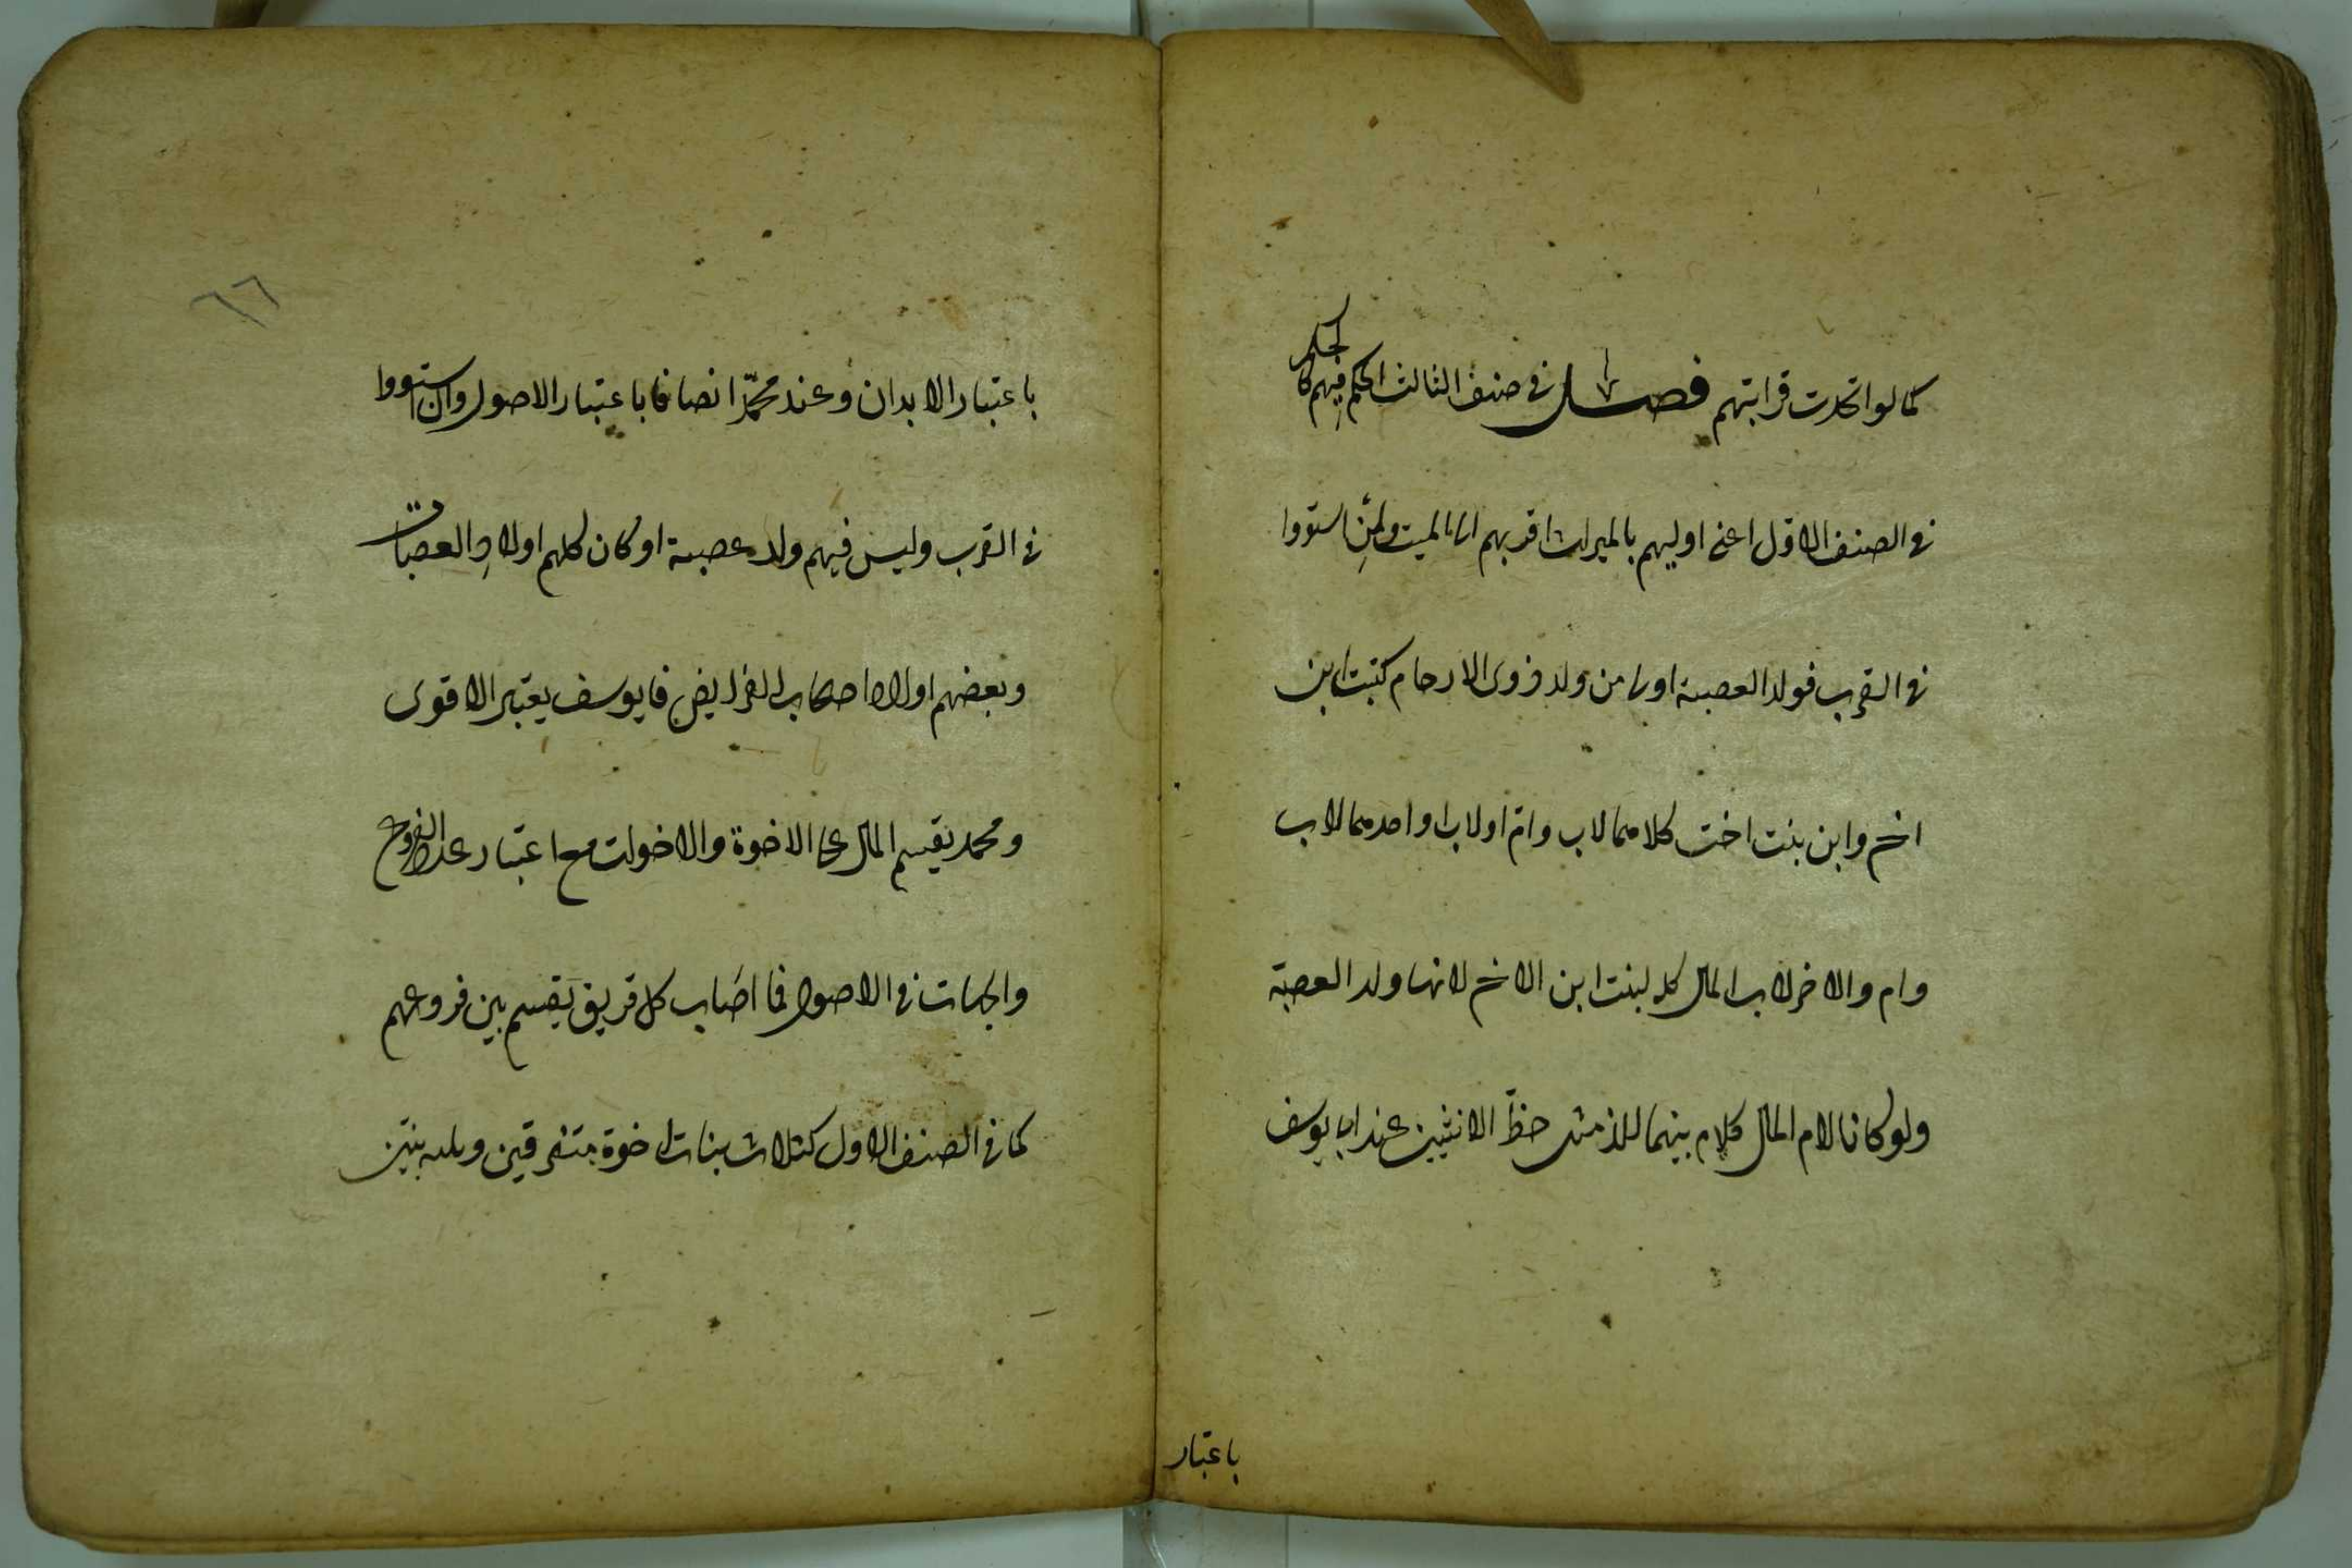 كما لو اتحدت قرابتهم فصل في صنف الثالث الحكم فيهم كالحكم
في الصنف الاول اعني اوليهم بالميراث اقربهم الى الميت ولئن استووا
في القرب فولد العصبة اولى من ولد ذوى الارحام كبنت ابن
اخ وابن بنت اخت كلاهما لاب وام او لاب او احدهما لاب
وام والاخر لاب المال كله لبنت ابن الاخ لانها ولد العصبة
ولو كانا لام المال بينهما للذكر مثل حظ الانثيين عند ابى يوسف
باعتبار
٦٦
باعتبار الابدان وعند محمد انصافا باعتبار الاصول وان استووا
في القرب وليس فيهم ولد عصبة او كان كلهم اولاد العصبات
وبعضهم اولاد اصحاب الفرايض فابو يوسف يعتبر الاقوى
ومحمد يقيسم المال على الاخوة والاخوات مع اعتبار عدد الفروع
والجهات في الاصول فما اصاب كل فريق يقسم بين فروعهم
كما في الصنف الاول كثلاث بنات اخوة متفرقين وثلثه بنين